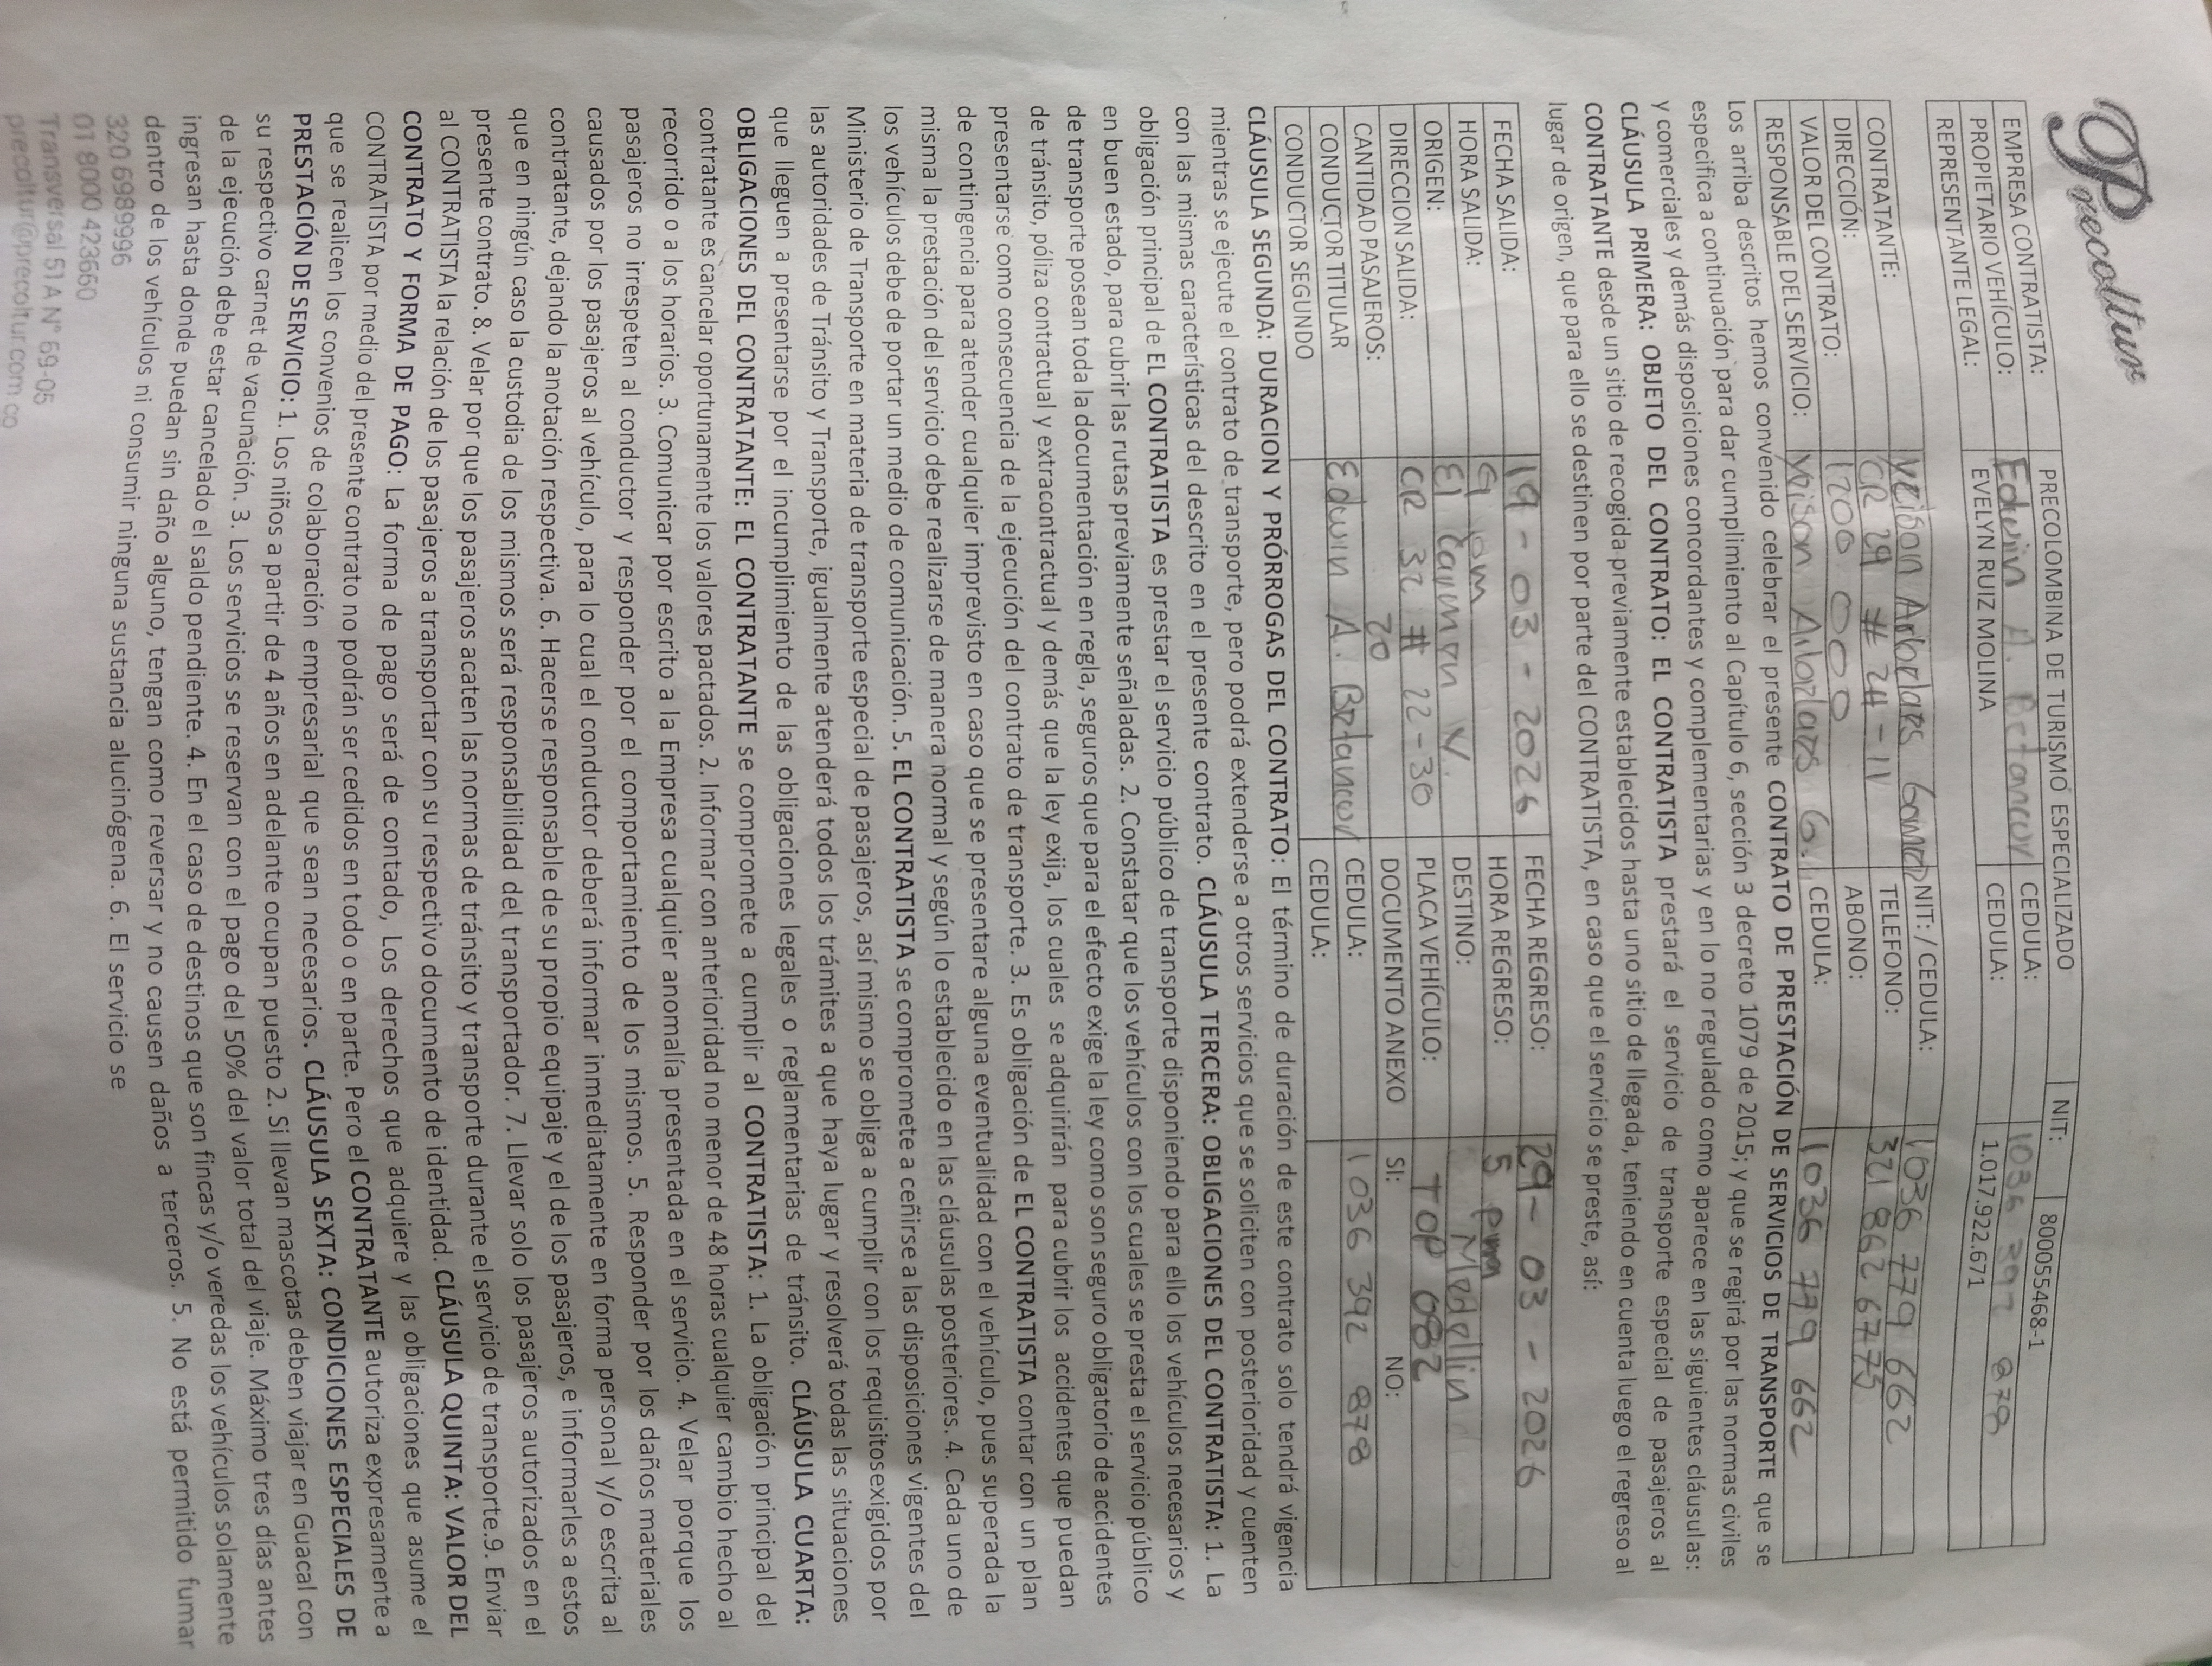 Precoltur
EMPRESA CONTRATISTA: PRECOLOMBINA DE TURISMO ESPECIALIZADO NIT: 800055468-1
PROPIETARIO VEHÍCULO: Edwin A. Betancur CEDULA: 1036 392 878
REPRESENTANTE LEGAL: EVELYN RUIZ MOLINA CEDULA: 1.017.922.671
CONTRATANTE: Yeison Arbelaes Gomez NIT: / CEDULA: 1036 779 662
DIRECCIÓN: CR 29 # 24 - 11 TELEFONO: 321 862 6775
VALOR DEL CONTRATO: 1200 000 ABONO:
RESPONSABLE DEL SERVICIO: Yeison Arbelaes G. CEDULA: 1036 779 662
Los arriba descritos hemos convenido celebrar el presente CONTRATO DE PRESTACIÓN DE SERVICIOS DE TRANSPORTE que se
especifica a continuación para dar cumplimiento al Capítulo 6, sección 3 decreto 1079 de 2015; y que se regirá por las normas civiles
y comerciales y demás disposiciones concordantes y complementarias y en lo no regulado como aparece en las siguientes cláusulas:
CLÁUSULA PRIMERA: OBJETO DEL CONTRATO: EL CONTRATISTA prestará el servicio de transporte especial de pasajeros al
CONTRATANTE desde un sitio de recogida previamente establecidos hasta uno sitio de llegada, teniendo en cuenta luego el regreso al
lugar de origen, que para ello se destinen por parte del CONTRATISTA, en caso que el servicio se preste, así:
FECHA SALIDA: 19 - 03 - 2026 FECHA REGRESO: 29 - 03 - 2026
HORA SALIDA: 9 am HORA REGRESO: 5 pm
ORIGEN: El Carmen V. DESTINO: Medellin
DIRECCION SALIDA: CR 32 # 22 - 30 PLACA VEHÍCULO: TOP 082
CANTIDAD PASAJEROS: 20 DOCUMENTO ANEXO SI: NO:
CONDUCTOR TITULAR Edwin A. Betancur CEDULA: 1036 392 878
CONDUCTOR SEGUNDO CEDULA:
CLÁUSULA SEGUNDA: DURACION Y PRÓRROGAS DEL CONTRATO: El término de duración de este contrato solo tendrá vigencia
mientras se ejecute el contrato de transporte, pero podrá extenderse a otros servicios que se soliciten con posterioridad y cuenten
con las mismas características del descrito en el presente contrato. CLÁUSULA TERCERA: OBLIGACIONES DEL CONTRATISTA: 1. La
obligación principal de EL CONTRATISTA es prestar el servicio público de transporte disponiendo para ello los vehículos necesarios y
en buen estado, para cubrir las rutas previamente señaladas. 2. Constatar que los vehículos con los cuales se presta el servicio público
de transporte posean toda la documentación en regla, seguros que para el efecto exige la ley como son seguro obligatorio de accidentes
de tránsito, póliza contractual y extracontractual y demás que la ley exija, los cuales se adquirirán para cubrir los accidentes que puedan
presentarse como consecuencia de la ejecución del contrato de transporte. 3. Es obligación de EL CONTRATISTA contar con un plan
de contingencia para atender cualquier imprevisto en caso que se presentare alguna eventualidad con el vehículo, pues superada la
misma la prestación del servicio debe realizarse de manera normal y según lo establecido en las cláusulas posteriores. 4. Cada uno de
los vehículos debe de portar un medio de comunicación. 5. EL CONTRATISTA se compromete a ceñirse a las disposiciones vigentes del
Ministerio de Transporte en materia de transporte especial de pasajeros, así mismo se obliga a cumplir con los requisitosexigidos por
las autoridades de Tránsito y Transporte, igualmente atenderá todos los trámites a que haya lugar y resolverá todas las situaciones
que lleguen a presentarse por el incumplimiento de las obligaciones legales o reglamentarias de tránsito. CLÁUSULA CUARTA:
OBLIGACIONES DEL CONTRATANTE: EL CONTRATANTE se compromete a cumplir al CONTRATISTA: 1. La obligación principal del
contratante es cancelar oportunamente los valores pactados. 2. Informar con anterioridad no menor de 48 horas cualquier cambio hecho al
recorrido o a los horarios. 3. Comunicar por escrito a la Empresa cualquier anomalía presentada en el servicio. 4. Velar porque los
pasajeros no irrespeten al conductor y responder por el comportamiento de los mismos. 5. Responder por los daños materiales
causados por los pasajeros al vehículo, para lo cual el conductor deberá informar inmediatamente en forma personal y/o escrita al
contratante, dejando la anotación respectiva. 6. Hacerse responsable de su propio equipaje y el de los pasajeros, e informarles a estos
que en ningún caso la custodia de los mismos será responsabilidad del transportador. 7. Llevar solo los pasajeros autorizados en el
presente contrato. 8. Velar por que los pasajeros acaten las normas de tránsito y transporte durante el servicio de transporte.9. Enviar
al CONTRATISTA la relación de los pasajeros a transportar con su respectivo documento de identidad. CLÁUSULA QUINTA: VALOR DEL
CONTRATO Y FORMA DE PAGO: La forma de pago será de contado, Los derechos que adquiere y las obligaciones que asume el
CONTRATISTA por medio del presente contrato no podrán ser cedidos en todo o en parte. Pero el CONTRATANTE autoriza expresamente a
que se realicen los convenios de colaboración empresarial que sean necesarios. CLÁUSULA SEXTA: CONDICIONES ESPECIALES DE
PRESTACIÓN DE SERVICIO: 1. Los niños a partir de 4 años en adelante ocupan puesto 2. Si llevan mascotas deben viajar en Guacal con
su respectivo carnet de vacunación. 3. Los servicios se reservan con el pago del 50% del valor total del viaje. Máximo tres días antes
de la ejecución debe estar cancelado el saldo pendiente. 4. En el caso de destinos que son fincas y/o veredas los vehículos solamente
ingresan hasta donde puedan sin daño alguno, tengan como reversar y no causen daños a terceros. 5. No está permitido fumar
dentro de los vehículos ni consumir ninguna sustancia alucinógena. 6. El servicio se
320 6989996
01 8000 423660
Transversal 51 A N° 69-05
precoltur@precoltur.com.co